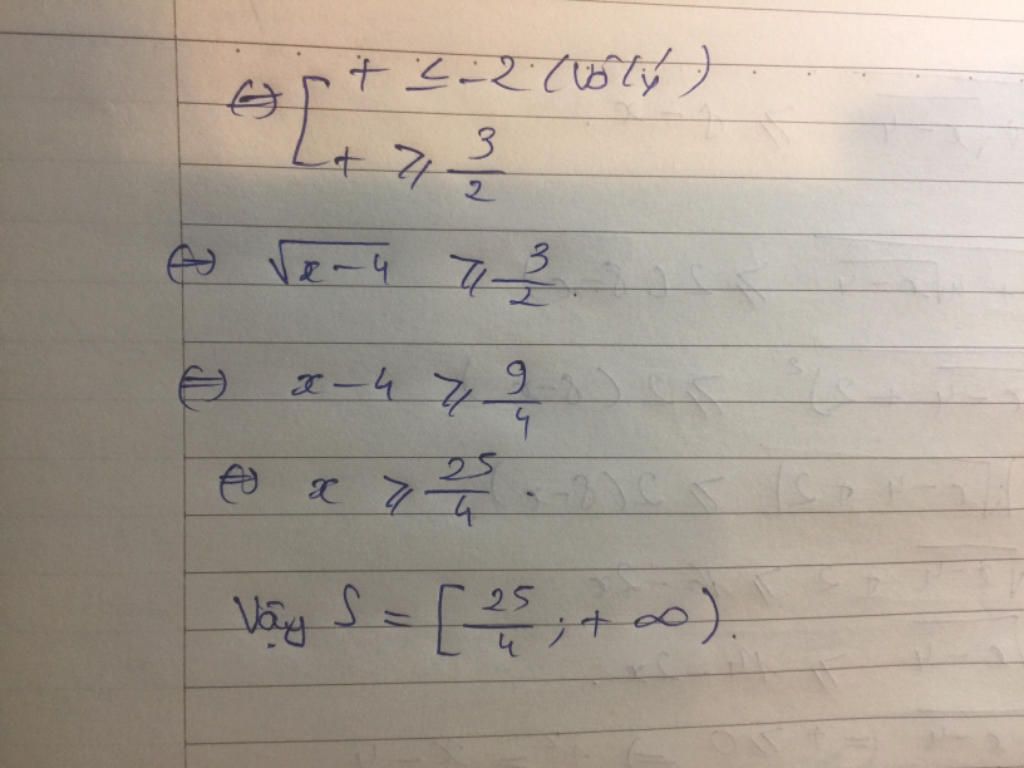 ⇔ [ t ≤ -2 (vô lý)
t ≥ 3/2
⇔ √(x-4) ≥ 3/2.
⇔ x-4 ≥ 9/4
⇔ x ≥ 25/4.
Vậy S = [25/4; +∞).